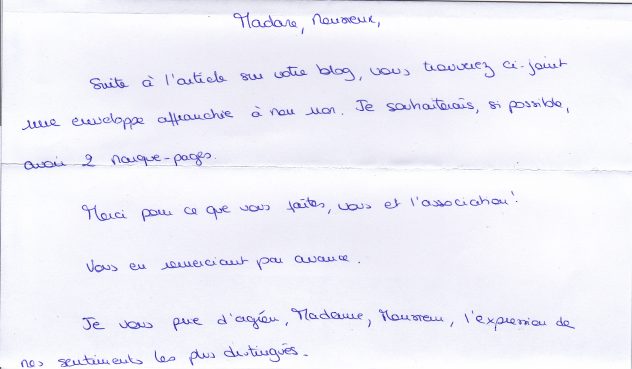 Madame, Monsieur,
Suite à l'article sur votre blog, vous trouverez ci-joint
une enveloppe affranchie à mon nom. Je souhaiterais, si possible,
avoir 2 marque-pages.
Merci pour ce que vous faites, vous et l'association!
Vous en remerciant par avance.
Je vous prie d'agréer, Madame, Monsieur, l'expression de
mes sentiments les plus distingués.